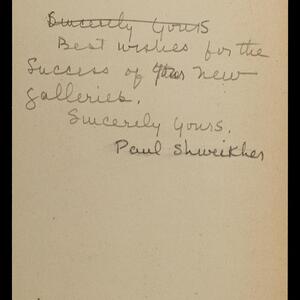 Sincerely Yours
Best wishes for the
Success of your new
galleries.
Sincerely Yours.
Paul Shweikher